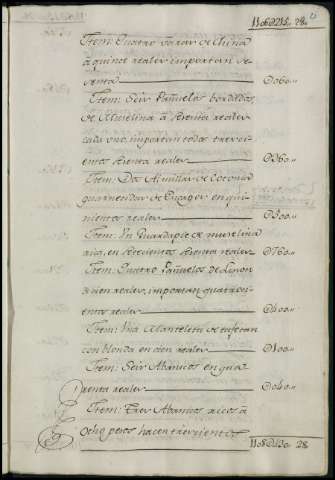 110ƱU212. 28.
Ittem: Quatro varas de China
a quince reales importan se-
senta — Ʊ060..
Ittem: Seis Pañuelos bordados,
de Muselina a sesenta reales
cada uno, importan todos trescien-
entos sesenta reales — Ʊ360..
Ittem: Dos Almillas de Cotonia
guarnecidas de Encages en qui-
nientos reales — Ʊ500..
Ittem: Un Guardapies de muselina
en setecientos sesenta reales Ʊ760..
Ittem: Quatro Pañuelos de Clarin
a cien reales, importan quatroci-
entos reales — Ʊ400..
Ittem: Una Manteleta de tafetan
con blonda en cien reales — Ʊ100..
Ittem: Seis Abanicos en qua-
renta reales — Ʊ040..
Ittem: Tres Abanicos ricos a
Ocho pesos hacen trescientos
28